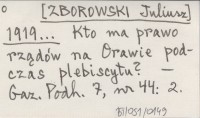 [ZBOROWSKI Juliusz]
1919... Kto ma prawo
rządów na Orawie pod-
czas plebiscytu? —
Gaz. Podh. 7, nr 44: 2.